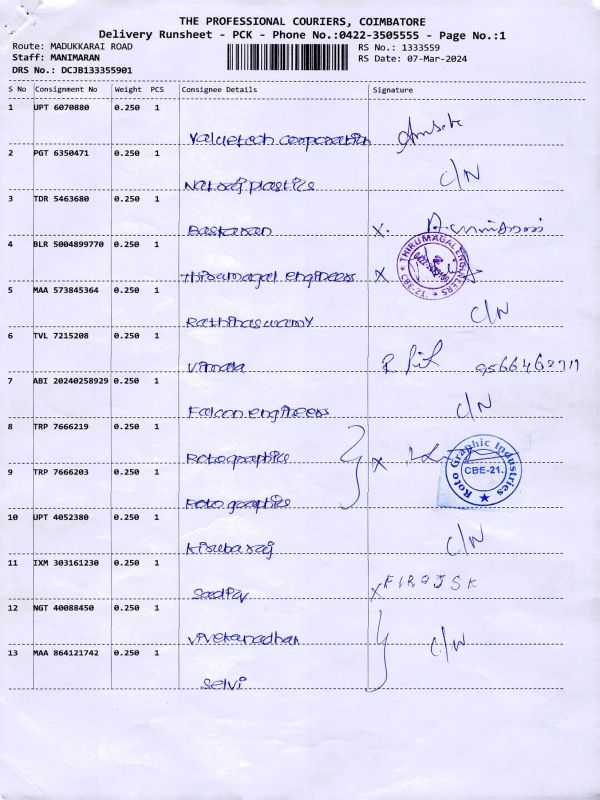 THE PROFESSIONAL COURIERS, COIMBATORE
Delivery Runsheet - PCK - Phone No.:0422-3505555 - Page No.:1
Route: MADUKKARAI ROAD RS No.: 1333559
Staff: MANIMARAN RS Date: 07-Mar-2024
DRS No.: DCJB133355901
S No Consignment No Weight PCS Consignee Details Signature
1 UPT 6070880 0.250 1
Valuetech cooporation
2 PGT 6350471 0.250 1
Natraj plastics C/N
3 TDR 5463680 0.250 1
Baskaran X.
4 BLR 5004899770 0.250 1
Thirumagal engineers X THIRUMAGAL ENGINEERS CBE-21.
5 MAA 573845364 0.250 1
Rathinaswamy C/N
6 TVL 7215208 0.250 1
Vimala 9566462711
7 ABI 20240258929 0.250 1
Falcon engineers C/N
8 TRP 7666219 0.250 1
Rotographics X Roto Graphic Industries CBE-21.
9 TRP 7666203 0.250 1
Roto graphics
10 UPT 4052380 0.250 1
Kirubaraj C/N
11 IXM 303161230 0.250 1
Sadiq X FIROJSK
12 NGT 40088450 0.250 1
Vivekanadhan C/N
13 MAA 864121742 0.250 1
Selvi